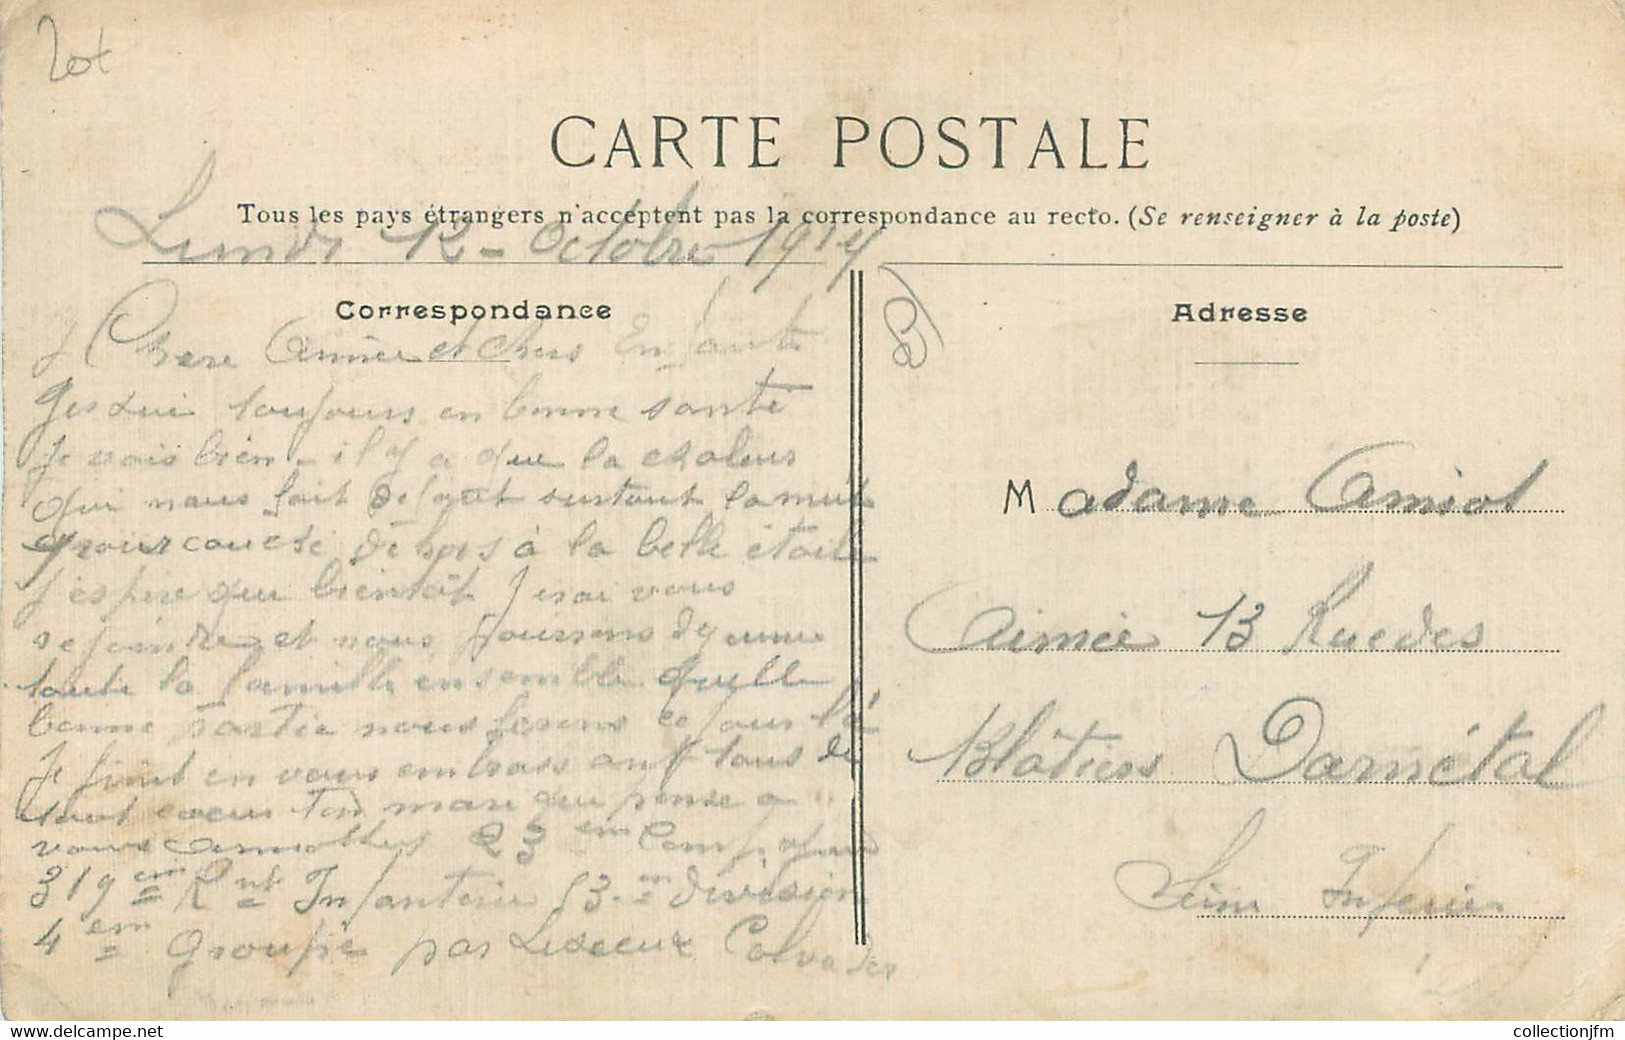 Lot
CARTE POSTALE
Tous les pays étrangers n'acceptent pas la correspondance au recto. (Se renseigner à la poste)
Lundi 12 - Octobre 1914
Correspondance
Chere Aimée et chers Enfants
toujours en bonne santé
Je vais bien - il y a que la chaleur
qui nous fait defaut surtout la nuit
pour couché dehors à la belle étoile
J'espere que bientôt J irai vous
rejointre et nous poussons
toute la famille ensemble quelle
bonne partie nous ferons ce jour là
Je finit en vous embrassant tous de
tout coeur ton mari qui pense a
vous 23 em Compagnie
319 em R nt Infanterie 53 m division
4 em groupe par Lisieux Calvados
Adresse
Madame Amiot
Aimée 13 Rue des
Blâtiers Darnétal
Seine Inferieure
collectionjfm
www.delcampe.net